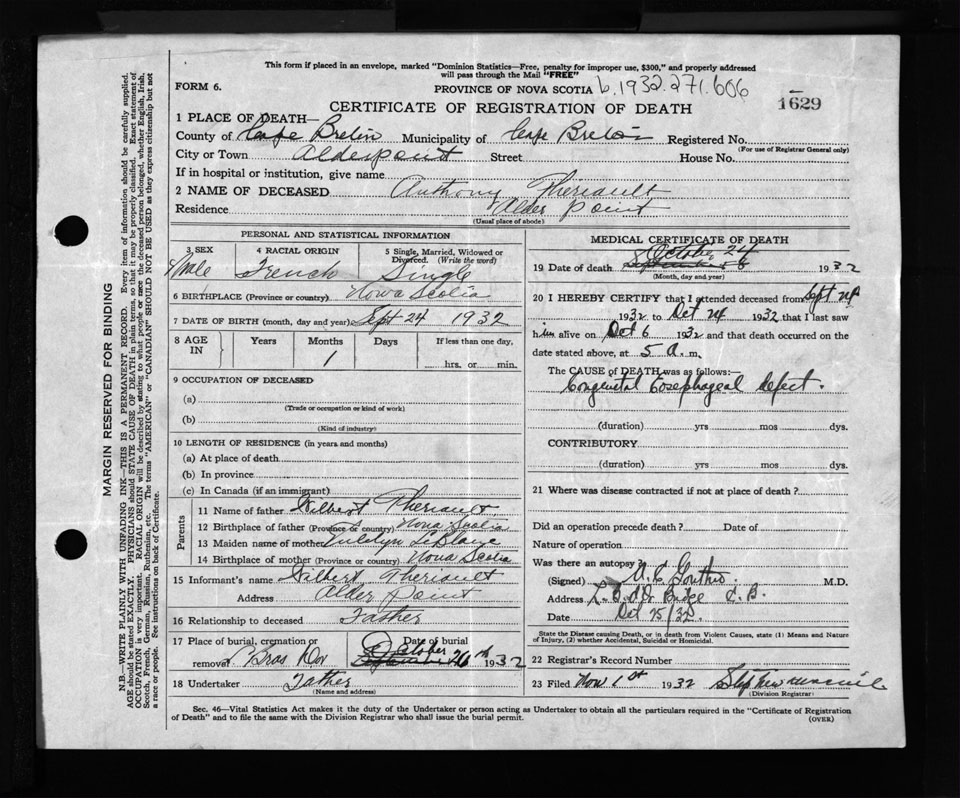 This form if placed in an envelope, marked "Dominion Statistics—Free, penalty for improper use, $300," and properly addressed
will pass through the Mail "FREE"
FORM 6. PROVINCE OF NOVA SCOTIA b.1932.271.606
CERTIFICATE OF REGISTRATION OF DEATH 1629
1 PLACE OF DEATH—
County of Cape Breton Municipality of Cape Breton Registered No.
(For use of Registrar General only)
City or Town Alderpoint Street House No.
If in hospital or institution, give name
2 NAME OF DECEASED Anthony Theriault
Residence Alder Point
(Usual place of abode)
PERSONAL AND STATISTICAL INFORMATION
3 SEX 4 RACIAL ORIGIN 5 Single, Married, Widowed or
Divorced. (Write the word)
Male French Single
6 BIRTHPLACE (Province or country) Nova Scotia
7 DATE OF BIRTH (month, day and year) Sept 24 1932
8 AGE IN Years Months Days If less than one day,
1 hrs. or min.
9 OCCUPATION OF DECEASED
(a)
(Trade or occupation or kind of work)
(b)
(Kind of industry)
10 LENGTH OF RESIDENCE (in years and months)
(a) At place of death
(b) In province
(c) In Canada (if an immigrant)
Parents
11 Name of father Gilbert Theriault
12 Birthplace of father (Province or country) Nova Scotia
13 Maiden name of mother LeBlanc
14 Birthplace of mother (Province or country) Nova Scotia
15 Informant's name Gilbert Theriault
Address Alder Point
16 Relationship to deceased Father
17 Place of burial, cremation or Date of burial
removal Bras Dor October 26th 1932
18 Undertaker Father
(Name and address)
MEDICAL CERTIFICATE OF DEATH
19 Date of death October 24 1932
(Month, day and year)
20 I HEREBY CERTIFY that I attended deceased from Sept 24
1932 to Oct 24 1932 that I last saw
him alive on Oct 6 1932 and that death occurred on the
date stated above, at 5 a.m.
The CAUSE of DEATH was as follows:—
Congenital Eosephageal defect.
(duration) yrs mos dys.
CONTRIBUTORY
(duration) yrs mos dys.
21 Where was disease contracted if not at place of death?
Did an operation precede death? Date of
Nature of operation
Was there an autopsy?
(Signed) M.D.
Address C.B.
Date Oct 25/32
State the Disease causing Death, or in death from Violent Causes, state (1) Means and Nature
of Injury, (2) whether Accidental, Suicidal or Homicidal.
22 Registrar's Record Number
23 Filed Nov 1st 1932
(Division Registrar)
Sec. 46—Vital Statistics Act makes it the duty of the Undertaker or person acting as Undertaker to obtain all the particulars required in the "Certificate of Registration
of Death" and to file the same with the Division Registrar who shall issue the burial permit. (OVER)
MARGIN RESERVED FOR BINDING
N.B.—WRITE PLAINLY WITH UNFADING INK—THIS IS A PERMANENT RECORD. Every item of information should be carefully supplied.
AGE should be stated EXACTLY. PHYSICIANS should STATE CAUSE OF DEATH in plain terms, so that it may be properly classified. Exact statement of
OCCUPATION is very important. RACIAL ORIGIN will be described by stating to what people or race the deceased person belonged, whether English, Irish,
Scotch, French, German, Russian, Ruthenian, etc. The terms "AMERICAN" or "CANADIAN" SHOULD NOT BE USED as they express citizenship but not
a race or people. See instructions on back of Certificate.